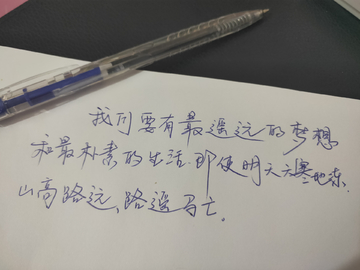 我们要有最遥远的梦想
和最朴素的生活.即使明天天寒地冻.
山高路远、路遥马亡.